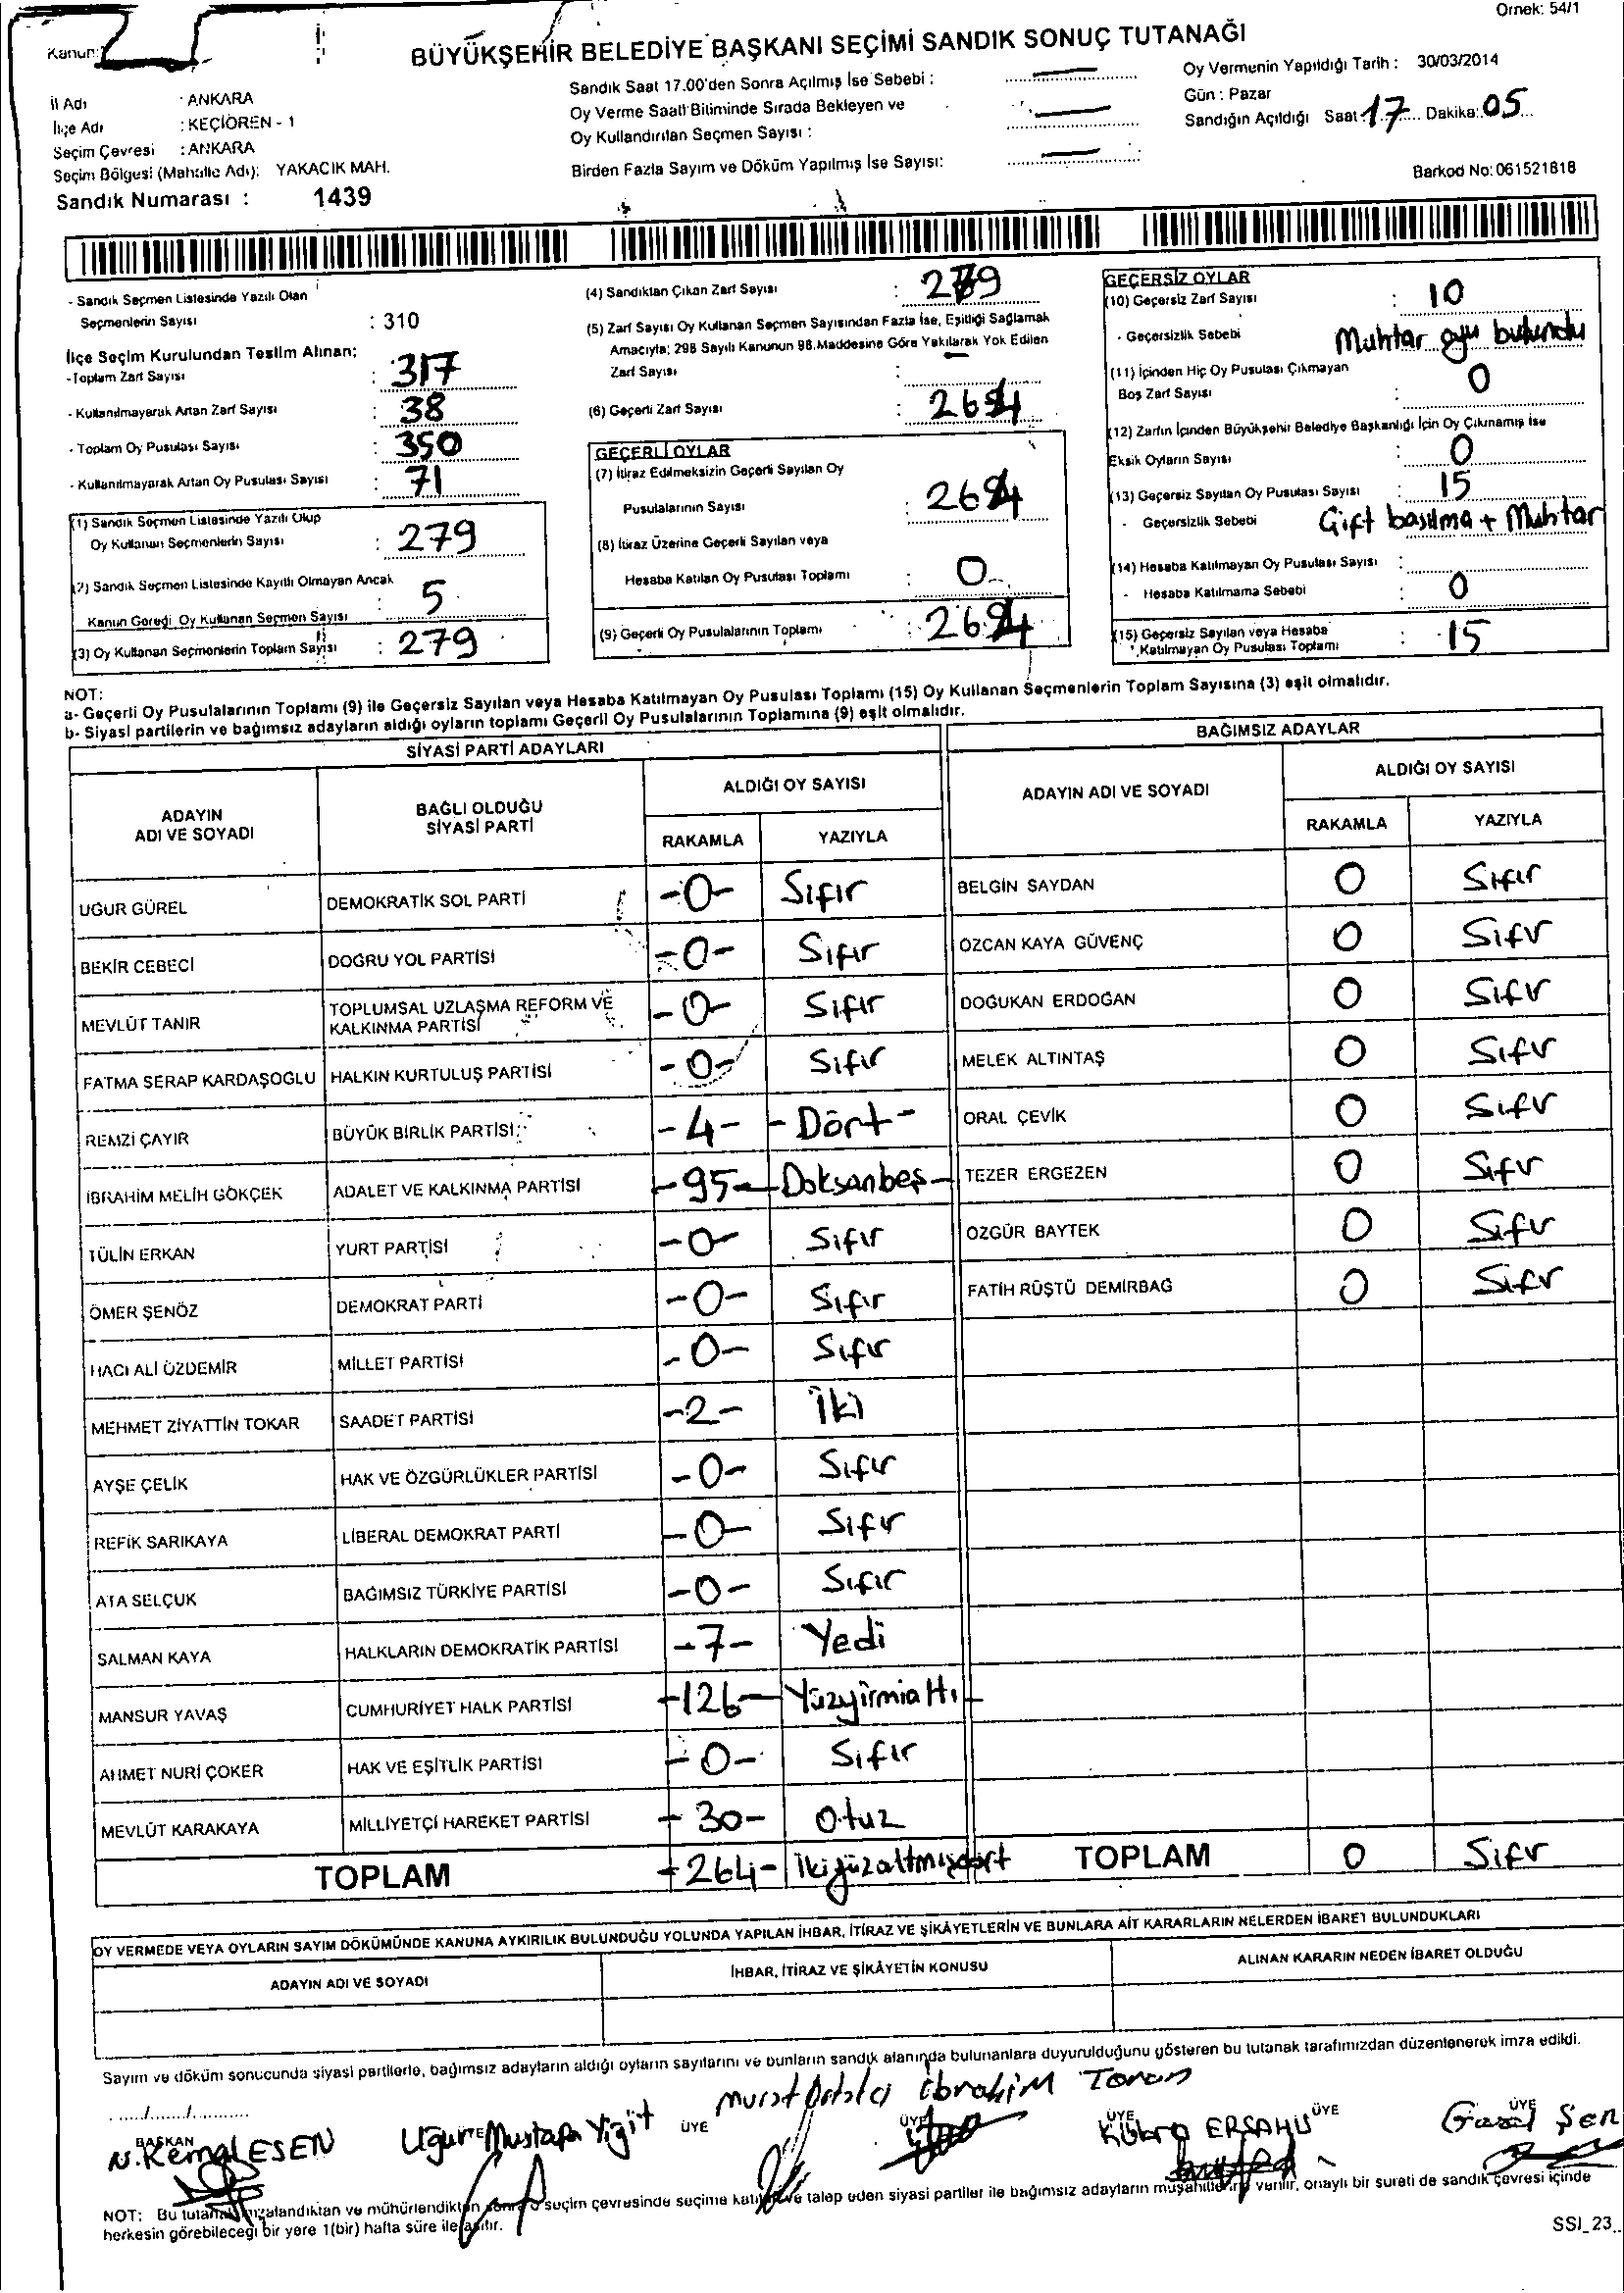 Örnek: 54/1
Kanun:
BÜYÜKŞEHİR BELEDİYE BAŞKANI SEÇİMİ SANDIK SONUÇ TUTANAĞI
İl Adı : ANKARA
İlçe Adı : KEÇİÖREN - 1
Seçim Çevresi : ANKARA
Seçim Bölgesi (Mahalle Adı): YAKACIK MAH.
Sandık Numarası : 1439
Sandık Saat 17.00'den Sonra Açılmış İse Sebebi :
Oy Verme Saati Bitiminde Sırada Bekleyen ve
Oy Kullandırılan Seçmen Sayısı :
Birden Fazla Sayım ve Döküm Yapılmış İse Sayısı:
Oy Vermenin Yapıldığı Tarih : 30/03/2014
Gün : Pazar
Sandığın Açıldığı Saat: 17 Dakika: 05
Barkod No: 061521818
- Sandık Seçmen Listesinde Yazılı Olan
Seçmenlerin Sayısı : 310
İlçe Seçim Kurulundan Teslim Alınan;
- Toplam Zarf Sayısı : 317
- Kullanılmayarak Artan Zarf Sayısı : 38
- Toplam Oy Pusulası Sayısı : 350
- Kullanılmayarak Artan Oy Pusulası Sayısı : 71
(1) Sandık Seçmen Listesinde Yazılı Olup
Oy Kullanan Seçmenlerin Sayısı : 279
(2) Sandık Seçmen Listesinde Kayıtlı Olmayan Ancak
Kanun Gereği Oy Kullanan Seçmen Sayısı : 5
(3) Oy Kullanan Seçmenlerin Toplam Sayısı : 279
(4) Sandıktan Çıkan Zarf Sayısı : 279
(5) Zarf Sayısı Oy Kullanan Seçmen Sayısından Fazla İse, Eşitliği Sağlamak
Amacıyla; 298 Sayılı Kanunun 98.Maddesine Göre Yakılarak Yok Edilen
Zarf Sayısı :
(6) Geçerli Zarf Sayısı : 264
GEÇERLİ OYLAR
(7) İtiraz Edilmeksizin Geçerli Sayılan Oy
Pusulalarının Sayısı : 264
(8) İtiraz Üzerine Geçerli Sayılan veya
Hesaba Katılan Oy Pusulası Toplamı : 0
(9) Geçerli Oy Pusulalarının Toplamı : 264
GEÇERSİZ OYLAR
(10) Geçersiz Zarf Sayısı : 10
- Geçersizlik Sebebi Muhtar oyu bulundu
(11) İçinden Hiç Oy Pusulası Çıkmayan
Boş Zarf Sayısı : 0
(12) Zarfın İçinden Büyükşehir Belediye Başkanlığı İçin Oy Çıkmamış İse
Eksik Oyların Sayısı : 0
(13) Geçersiz Sayılan Oy Pusulası Sayısı : 15
- Geçersizlik Sebebi Çift basılma + Muhtar
(14) Hesaba Katılmayan Oy Pusulası Sayısı :
- Hesaba Katılmama Sebebi : 0
(15) Geçersiz Sayılan veya Hesaba
Katılmayan Oy Pusulası Toplamı : 15
NOT:
a- Geçerli Oy Pusulalarının Toplamı (9) ile Geçersiz Sayılan veya Hesaba Katılmayan Oy Pusulası Toplamı (15) Oy Kullanan Seçmenlerin Toplam Sayısına (3) eşit olmalıdır.
b- Siyasi partilerin ve bağımsız adayların aldığı oyların toplamı Geçerli Oy Pusulalarının Toplamına (9) eşit olmalıdır.
SİYASİ PARTİ ADAYLARI
ADAYIN ADI VE SOYADI BAĞLI OLDUĞU SİYASİ PARTİ ALDIĞI OY SAYISI
RAKAMLA YAZIYLA
UĞUR GÜREL DEMOKRATİK SOL PARTİ -0- Sıfır
BEKİR CEBECİ DOĞRU YOL PARTİSİ -0- Sıfır
MEVLÜT TANIR TOPLUMSAL UZLAŞMA REFORM VE KALKINMA PARTİSİ -0- Sıfır
FATMA SERAP KARDAŞOĞLU HALKIN KURTULUŞ PARTİSİ -0- Sıfır
REMZİ ÇAYIR BÜYÜK BİRLİK PARTİSİ -4- -Dört-
İBRAHİM MELİH GÖKÇEK ADALET VE KALKINMA PARTİSİ -95- -Doksanbeş-
TÜLİN ERKAN YURT PARTİSİ -0- Sıfır
ÖMER ŞENÖZ DEMOKRAT PARTİ -0- Sıfır
HACI ALİ ÖZDEMİR MİLLET PARTİSİ -0- Sıfır
MEHMET ZİYATTİN TOKAR SAADET PARTİSİ -2- İki
AYŞE ÇELİK HAK VE ÖZGÜRLÜKLER PARTİSİ -0- Sıfır
REFİK SARIKAYA LİBERAL DEMOKRAT PARTİ -0- Sıfır
ATA SELÇUK BAĞIMSIZ TÜRKİYE PARTİSİ -0- Sıfır
SALMAN KAYA HALKLARIN DEMOKRATİK PARTİSİ -7- Yedi
MANSUR YAVAŞ CUMHURİYET HALK PARTİSİ -126- Yüzyirmialtı-
AHMET NURİ ÇOKER HAK VE EŞİTLİK PARTİSİ -0- Sıfır
MEVLÜT KARAKAYA MİLLİYETÇİ HAREKET PARTİSİ -30- Otuz
TOPLAM -264- İkiyüzaltmışdört
BAĞIMSIZ ADAYLAR
ADAYIN ADI VE SOYADI ALDIĞI OY SAYISI
RAKAMLA YAZIYLA
BELGİN SAYDAN 0 Sıfır
ÖZCAN KAYA GÜVENÇ 0 Sıfır
DOĞUKAN ERDOĞAN 0 Sıfır
MELEK ALTINTAŞ 0 Sıfır
ORAL ÇEVİK 0 Sıfır
TEZER ERGEZEN 0 Sıfır
ÖZGÜR BAYTEK 0 Sıfır
FATİH RÜŞTÜ DEMİRBAĞ 0 Sıfır
TOPLAM 0 Sıfır
OY VERMEDE VEYA OYLARIN SAYIM DÖKÜMÜNDE KANUNA AYKIRILIK BULUNDUĞU YOLUNDA YAPILAN İHBAR, İTİRAZ VE ŞİKÂYETLERİN VE BUNLARA AİT KARARLARIN NELERDEN İBARET BULUNDUKLARI
ADAYIN ADI VE SOYADI İHBAR, İTİRAZ VE ŞİKÂYETİN KONUSU ALINAN KARARIN NEDEN İBARET OLDUĞU
Sayım ve döküm sonucunda siyasi partilerle, bağımsız adayların aldığı oyların sayılarını ve bunların sandık alanında bulunanlara duyurulduğunu gösteren bu tutanak tarafımızdan düzenlenerek imza edildi.
...../......../............
Murat İbrahim Toran
BAŞKAN ÜYE ÜYE ÜYE ÜYE ÜYE
N.Kemal ESEN Uğur Mustafa Yiğit Kübra ERŞAHİN Gazel Şen
NOT: Bu tutanak imzalandıktan ve mühürlendikten sonra o seçim çevresinde seçime katılan ve talep eden siyasi partiler ile bağımsız adayların müşahitlerine verilir, onaylı bir sureti de sandık çevresi içinde
herkesin görebileceği bir yere 1(bir) hafta süre ile asılır.
SSI_23